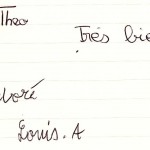 Theo
Très bie
oré
Louis. A